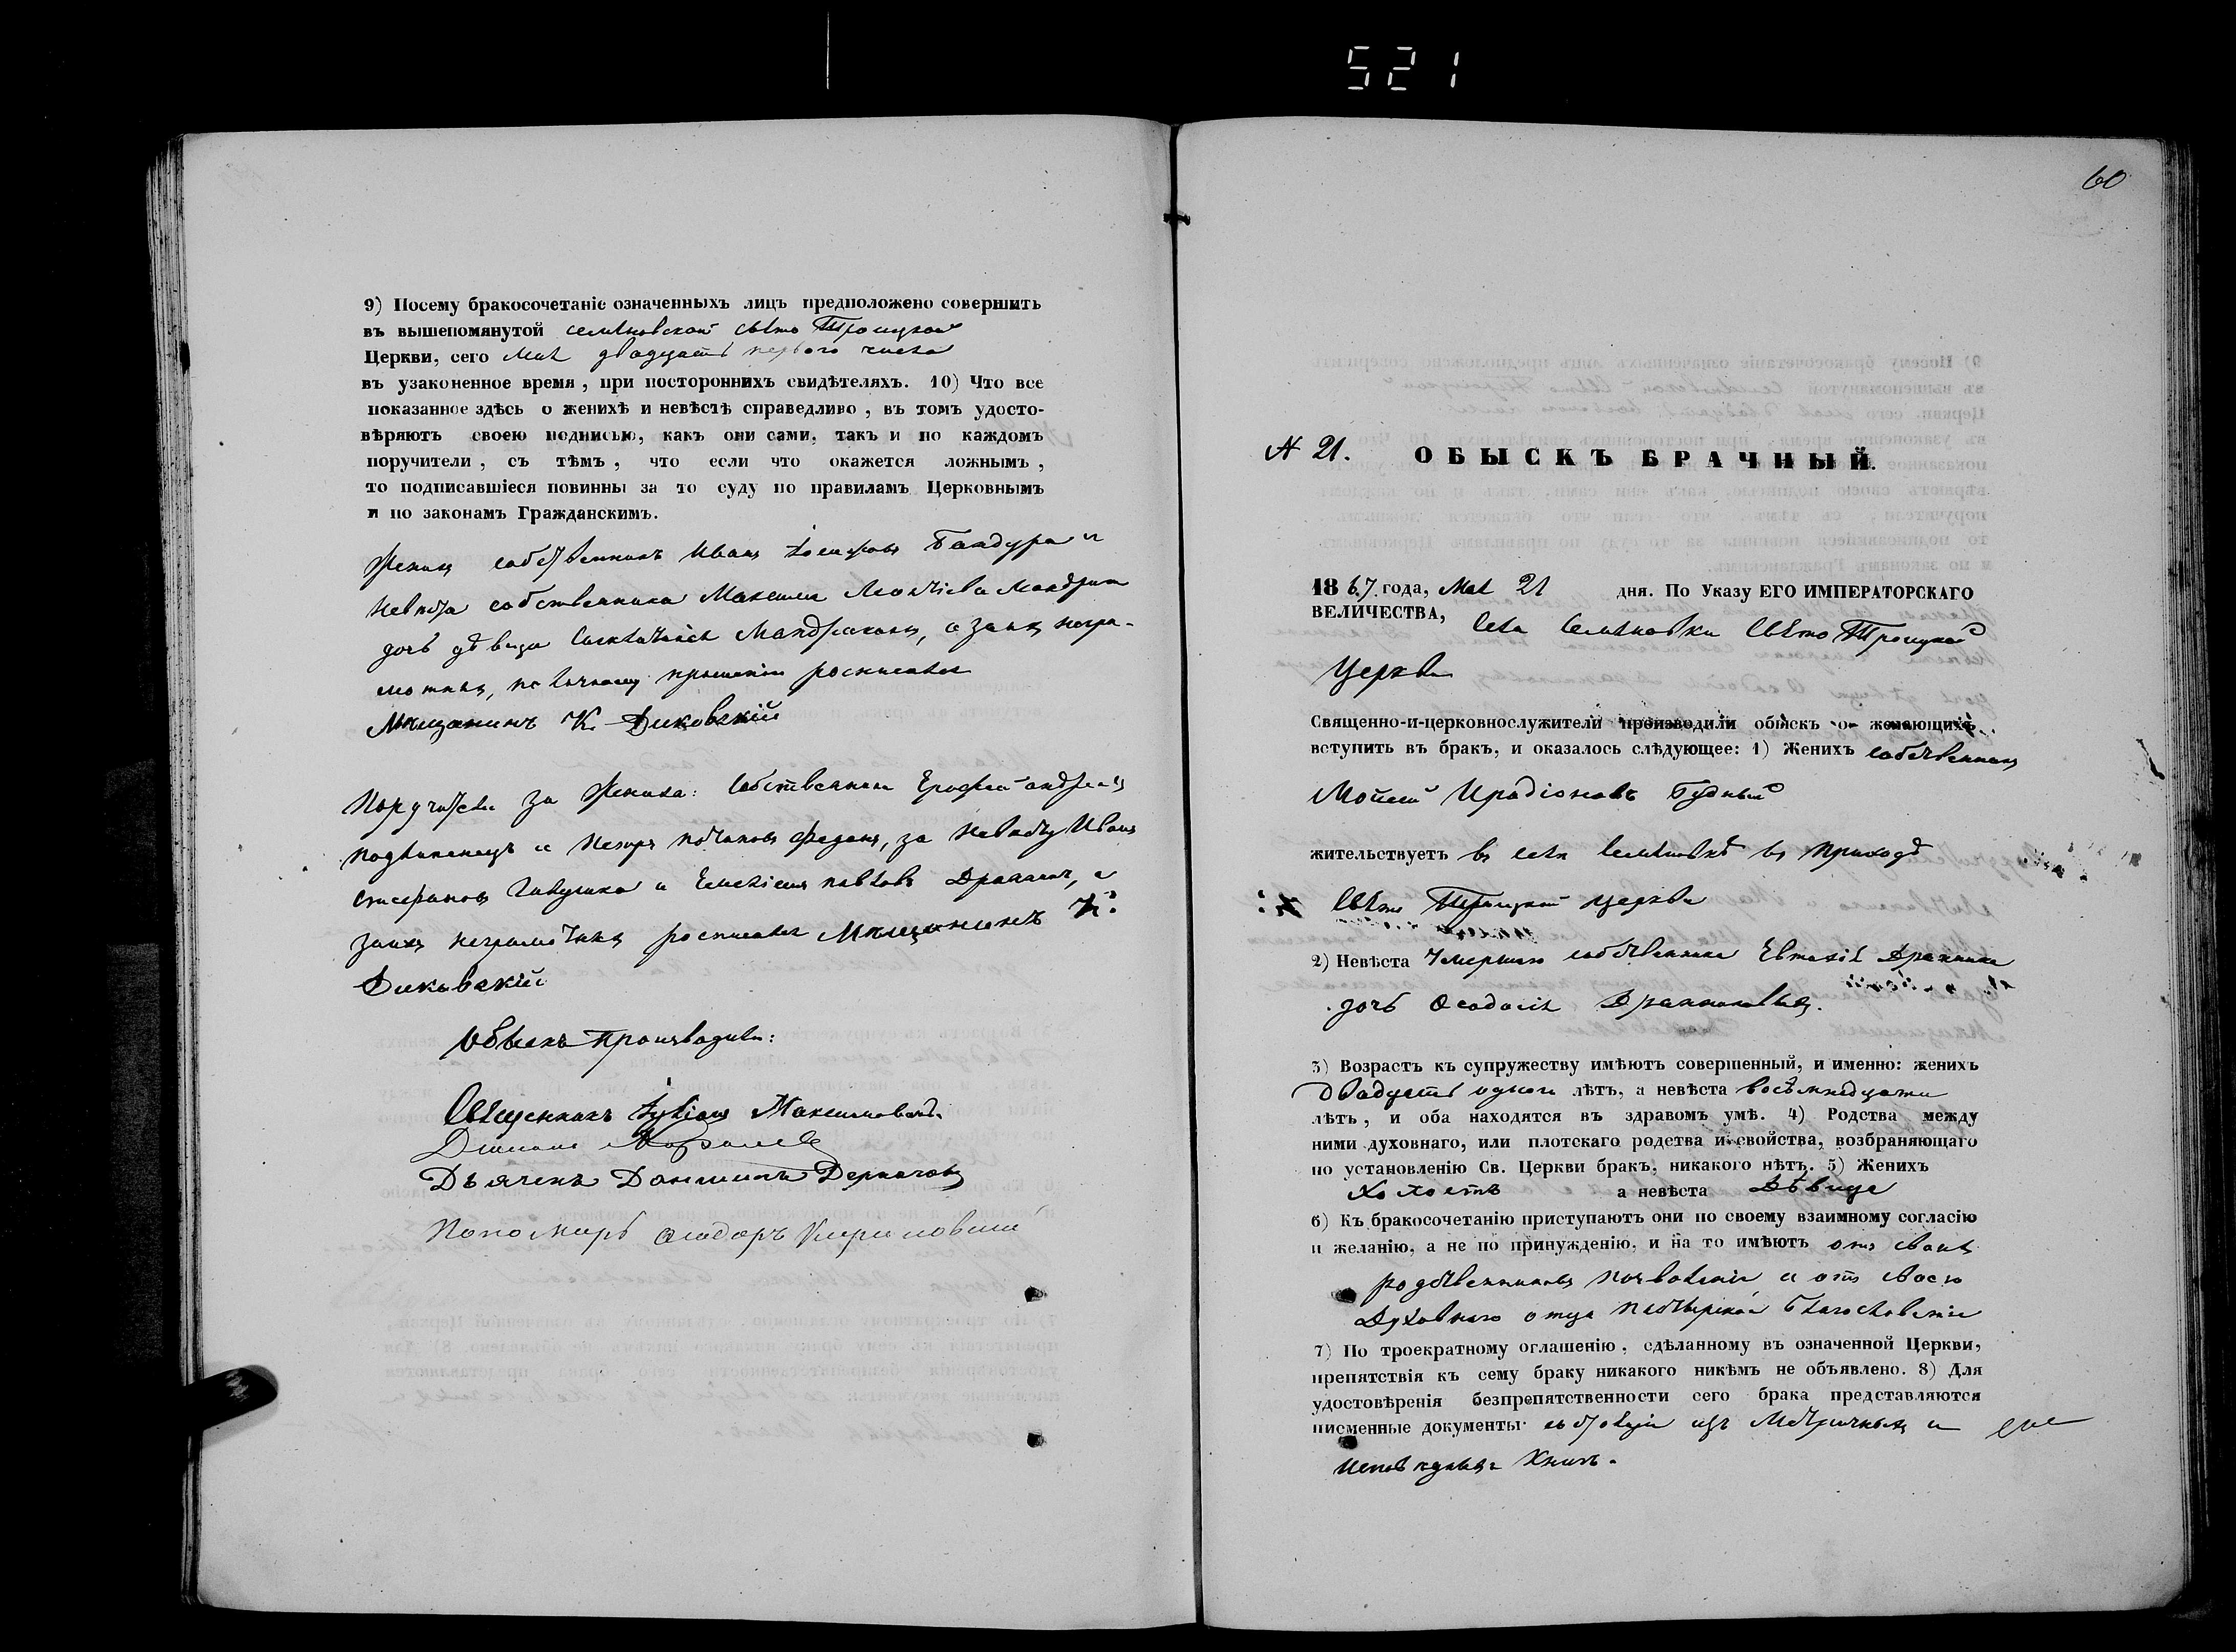 521
9) Посему бракосочетаніе означенныхъ лицъ предположено совершить
въ вышепомянутой Семеновской Свято Троицкой
Церкви, сего Мая двадцать первого числа
въ узаконенное время, при постороннихъ свидѣтеляхъ. 10) Что все
показанное здѣсь о женихѣ и невѣстѣ справедливо, въ томъ удосто-
вѣряютъ своею подписью, какъ они сами, такъ и по каждомъ
поручители, съ тѣмъ, что если что окажется ложнымъ,
то подписавшіеся повинны за то суду по правиламъ Церковнымъ
и по законамъ Гражданскимъ.
Жених собственникъ Иван Бандура и
Невѣста собственника Максима
дочь дѣвица а заих негра-
мотных, по личному прошению росписался
Мѣщанинъ К. Диковскій
Поручители за Жениха: Собственники Ерофей Андреев
и за Невѣсту Иван
Стефанов и Драннич, а
заих неграмотных росписался Мѣщанинъ К.
Диковскій
Обыскъ производили:
Священникъ Максимовичъ
Дьячекъ Даниилъ
Пономарь Феодоръ
60
N 21. ОБЫСКЪ БРАЧНЫЙ.
1867. года, Мая 21 дня. По Указу ЕГО ИМПЕРАТОРСКАГО
ВЕЛИЧЕСТВА, Села Семеновки Свято Троицкой
Церкви
Священно-и-церковнослужители производили обыскъ о желающихъ
вступить въ бракъ, и оказалось слѣдующее: 1) Женихъ собственник
Моисей Иродіоновъ Будный
жительствуетъ в селе Семеновкѣ в приходѣ
Свято Троицкой церкви
2) Невѣста Умершаго собственника Драника
дочь Феодосія
3) Возрастъ къ супружеству имѣютъ совершенный, и именно: женихъ
двадцать одного лѣтъ, а невѣста восѣмнадцати
лѣтъ, и оба находятся въ здравомъ умѣ. 4) Родства между
ними духовнаго, или плотскаго родства и свойства, возбраняющаго
по установленію Св. Церкви бракъ, никакого нѣтъ. 5) Женихъ
Холостъ а невѣста Дѣвица
6) Къ бракосочетанію приступаютъ они по своему взаимному согласію
и желанію, а не по принужденію, и на то имѣютъ отъ своих
родственников позволеніе и отъ своего
Духовнаго отца пастырское благословеніе
7) По троекратному оглашенію, сдѣланному въ означенной Церкви,
препятствія къ сему браку никакого никѣмъ не объявлено. 8) Для
удостовѣренія безпрепятственности сего брака представляются
писменные документы изъ Метричных и
Исповедных Книгъ.